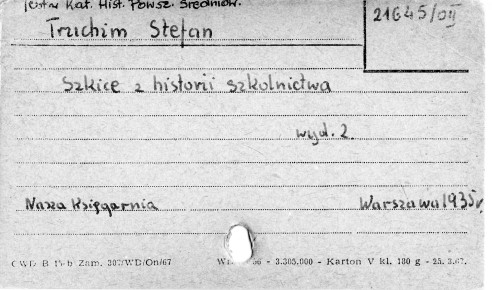 Jest w Kat. Hist. Powsz. Średniow.
21645/OII
Truchim Stefan
Szkice z historii szkolnictwa
wyd. 2.
Nasza Księgarnia Warszawa 1935 r.
CWD B 15-b Zam. 307/WD/On/67 - 3.305.000 - Karton V kl. 180 g - 25. 3.67.